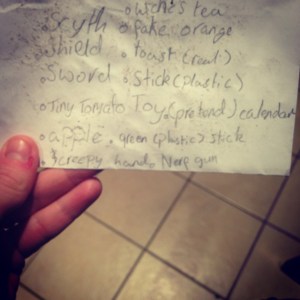 witches tea
Scyth fake orange
Shield toast (real)
Sword Stick (plastic)
Tiny Tomato Toy (pretend) calendar
apple green (plastic) stick
Screepy hand Nerf gun